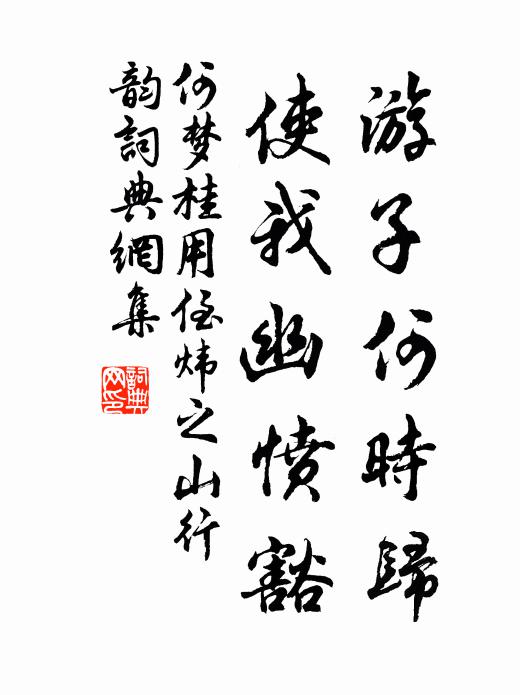 游子何時歸
使我幽憤豁
何梦桂用侄炜之山行
韵詞典網集
詞典网印